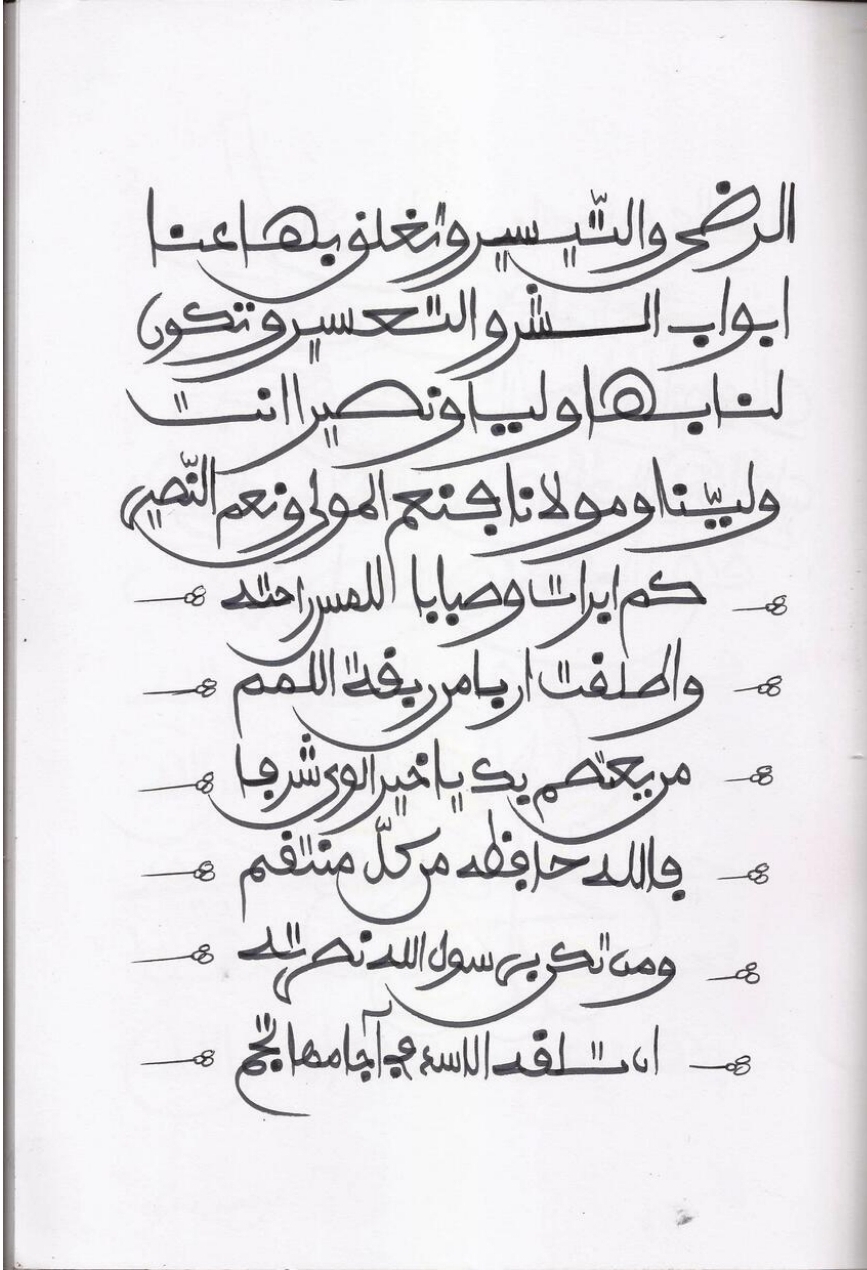 الرضى والتّيسير وتغلق بها عنا
ابواب الشر والتعسير وتكون
لنا بها وليا ونصيرا انت
وليّنا ومولانا فنعم المولى ونعم النّصير
كم ابرات وصبا باللمس راحته
واطلقت اربا من ربقة اللمم
من يعتصم بك يا خير الورى شرفا
فالله حافظه من كلّ منتقم
ومن تكن برسول الله نصرته
ان تلقه الاسد في آجامها تجم